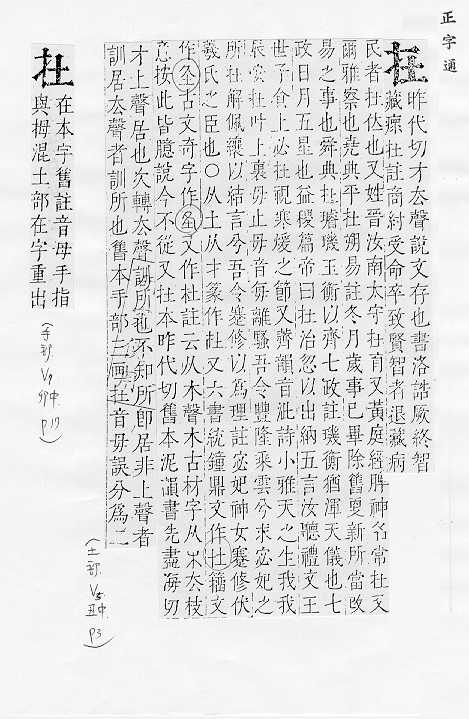 正字通
在
昨代切才去聲說文存也書洛誥厥終智
藏瘝在註商紂受命卒致賢智者退藏病
民者在位也又姓晉汝南太守在育又黃庭經脾神名常在又
爾雅察也堯典平在朔易註冬月歲事已畢除舊更新所當改
易之事也舜典在璿璣玉衡以齊七政註璣衡猶渾天儀也七
政日月五星也益稷篇帝曰在治忽以出納五言汝聽禮文王
世子食上必在視寒煖之節又薺韻音泚詩小雅天之生我我
辰安在叶上裏毋止毋音每離騷吾令豐隆乘雲兮求宓妃之
所在解佩纕以結言兮吾令蹇修以爲理註宓妃神女蹇修伏
羲氏之臣也○从土从才篆作在又六書統鐘鼎文作杜籀文
作古文奇字作又作註云从木聲木古材字从木去枝
意按此皆臆說今不從又在本昨代切舊本泥韻書先盡海切
才上聲居也次轉去聲訓所也不知所卽居非上聲者
訓居去聲者訓所也舊本手部三畫扗音毋誤分爲二
(土部 V5 丑中 p3)
扗
在本字舊註音母手指
與拇混土部在字重出
(手部 V7 卯中 p17)